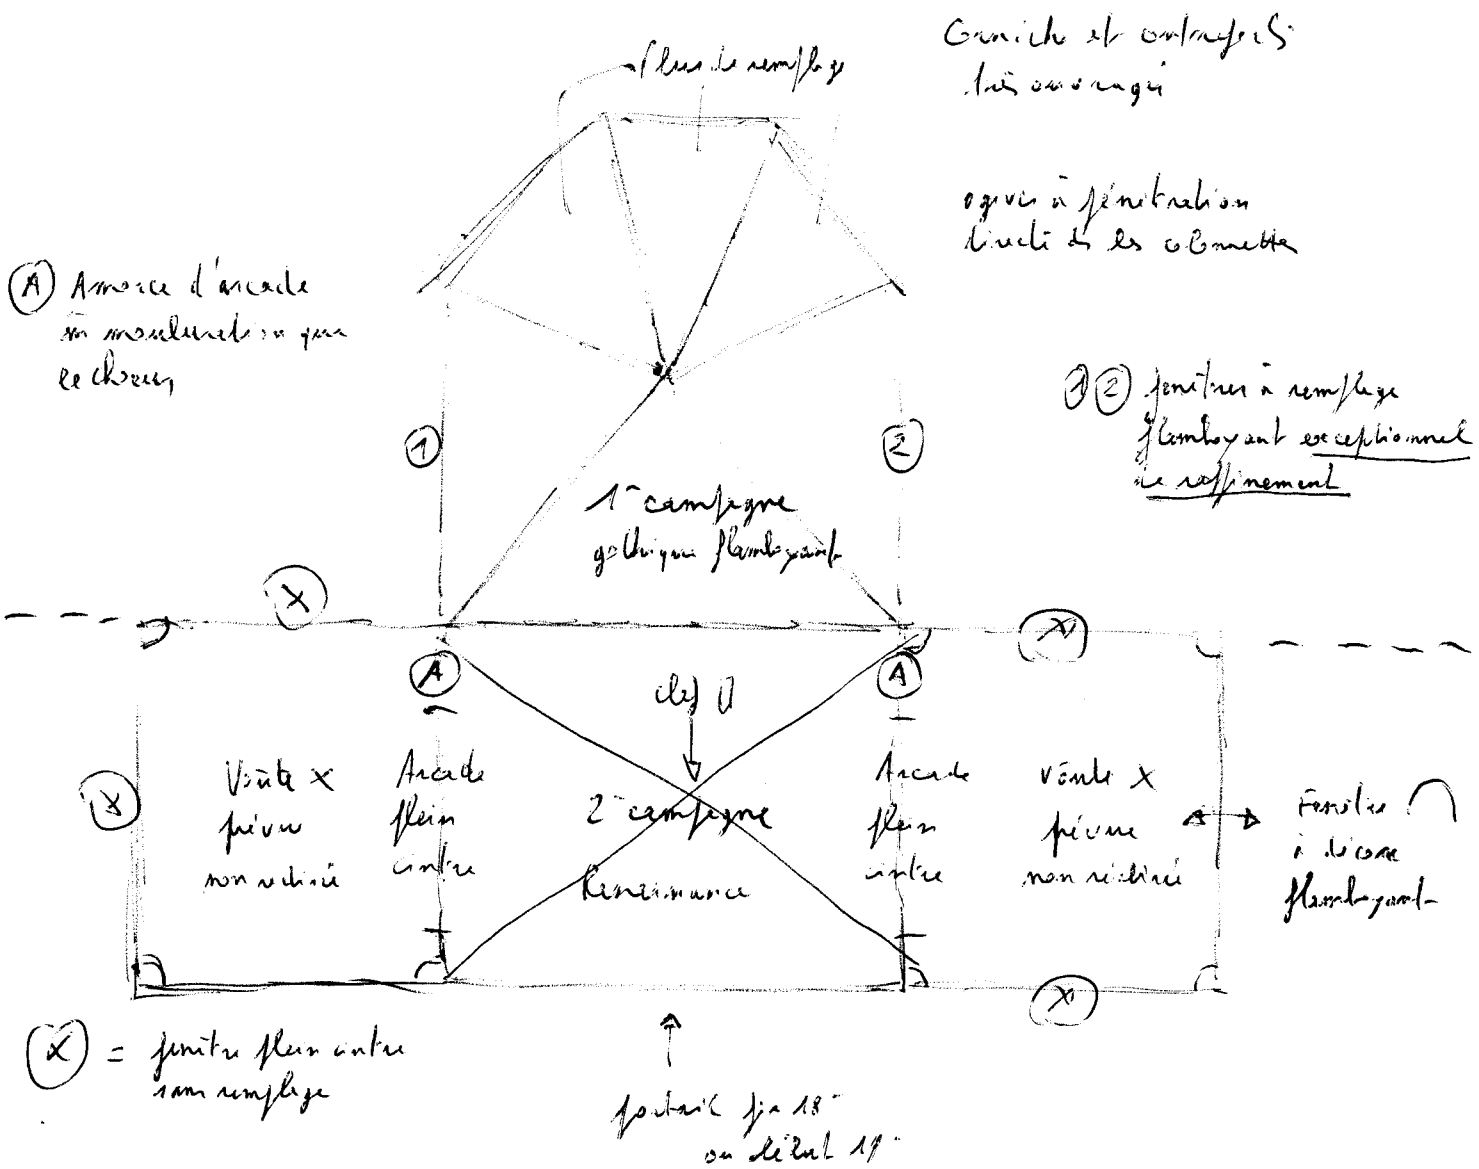 Corniche et contreforts
très ouvragés
plus de remplage
ogives à pénétration
directe ds les colonnettes
(A) Amorce d'arcade
m̄ mouluration que
le chœur
(1) (2) fenêtres à remplage
flamboyant exceptionnel
de raffinement
(1)
(2)
1° campagne
gothique flamboyant
(X)
(X)
(A)
(A)
clef
Voûte X
prévue
non réalisée
Arcade
plein
cintre
2° campagne
Renaissance
Arcade
plein
cintre
voûte X
prévue
non réalisée
(X)
Fenêtre
à décor
flamboyant
(X)
(X) = fenêtre plein cintre
sans remplage
portail fin 18°
ou début 19°